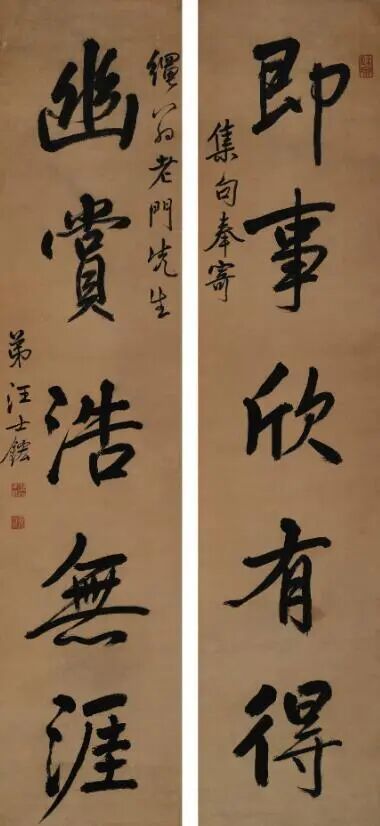 即事欣有得
集句奉寄
翁老門先生
幽賞浩無涯
弟汪士鋐